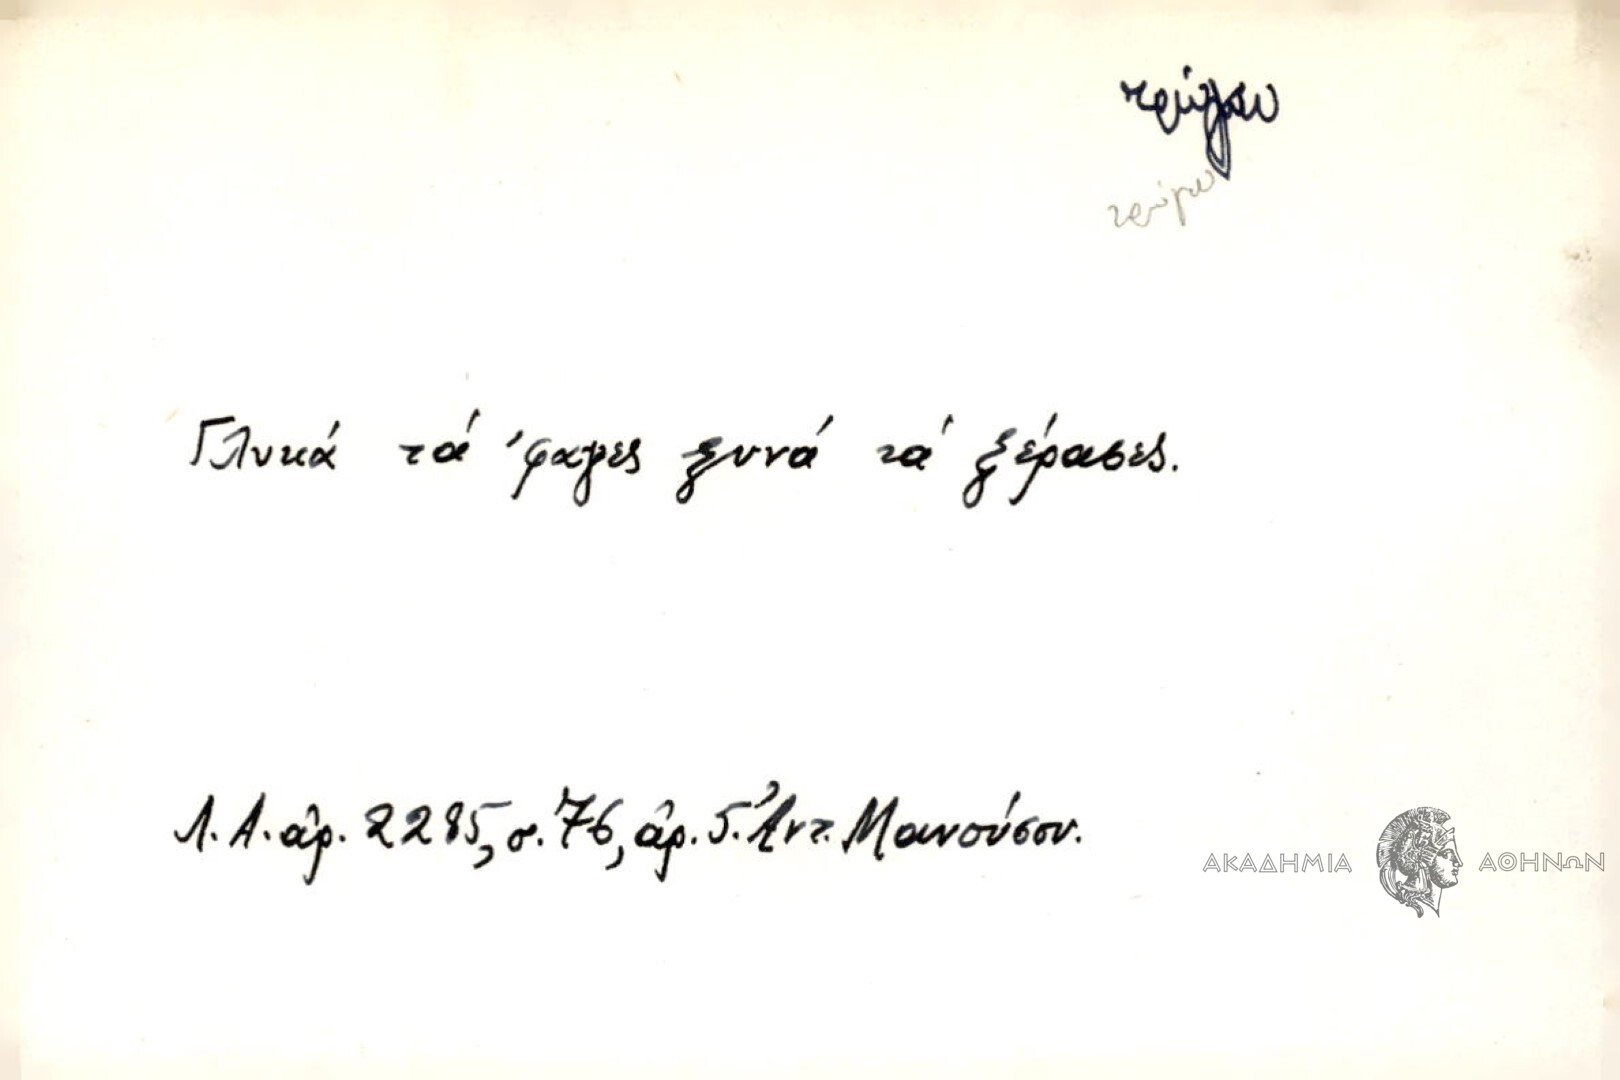 τρώγω
τρώγω
Γλυκά τά 'φαγες ξυνά τά ξέρασες.
Λ.Α. ἀρ. 2285, σ. 76, ἀρ. 5. Ἀντ. Μανούσου.
ΑΚΑΔΗΜΙΑ ΑΘΗΝΩΝ